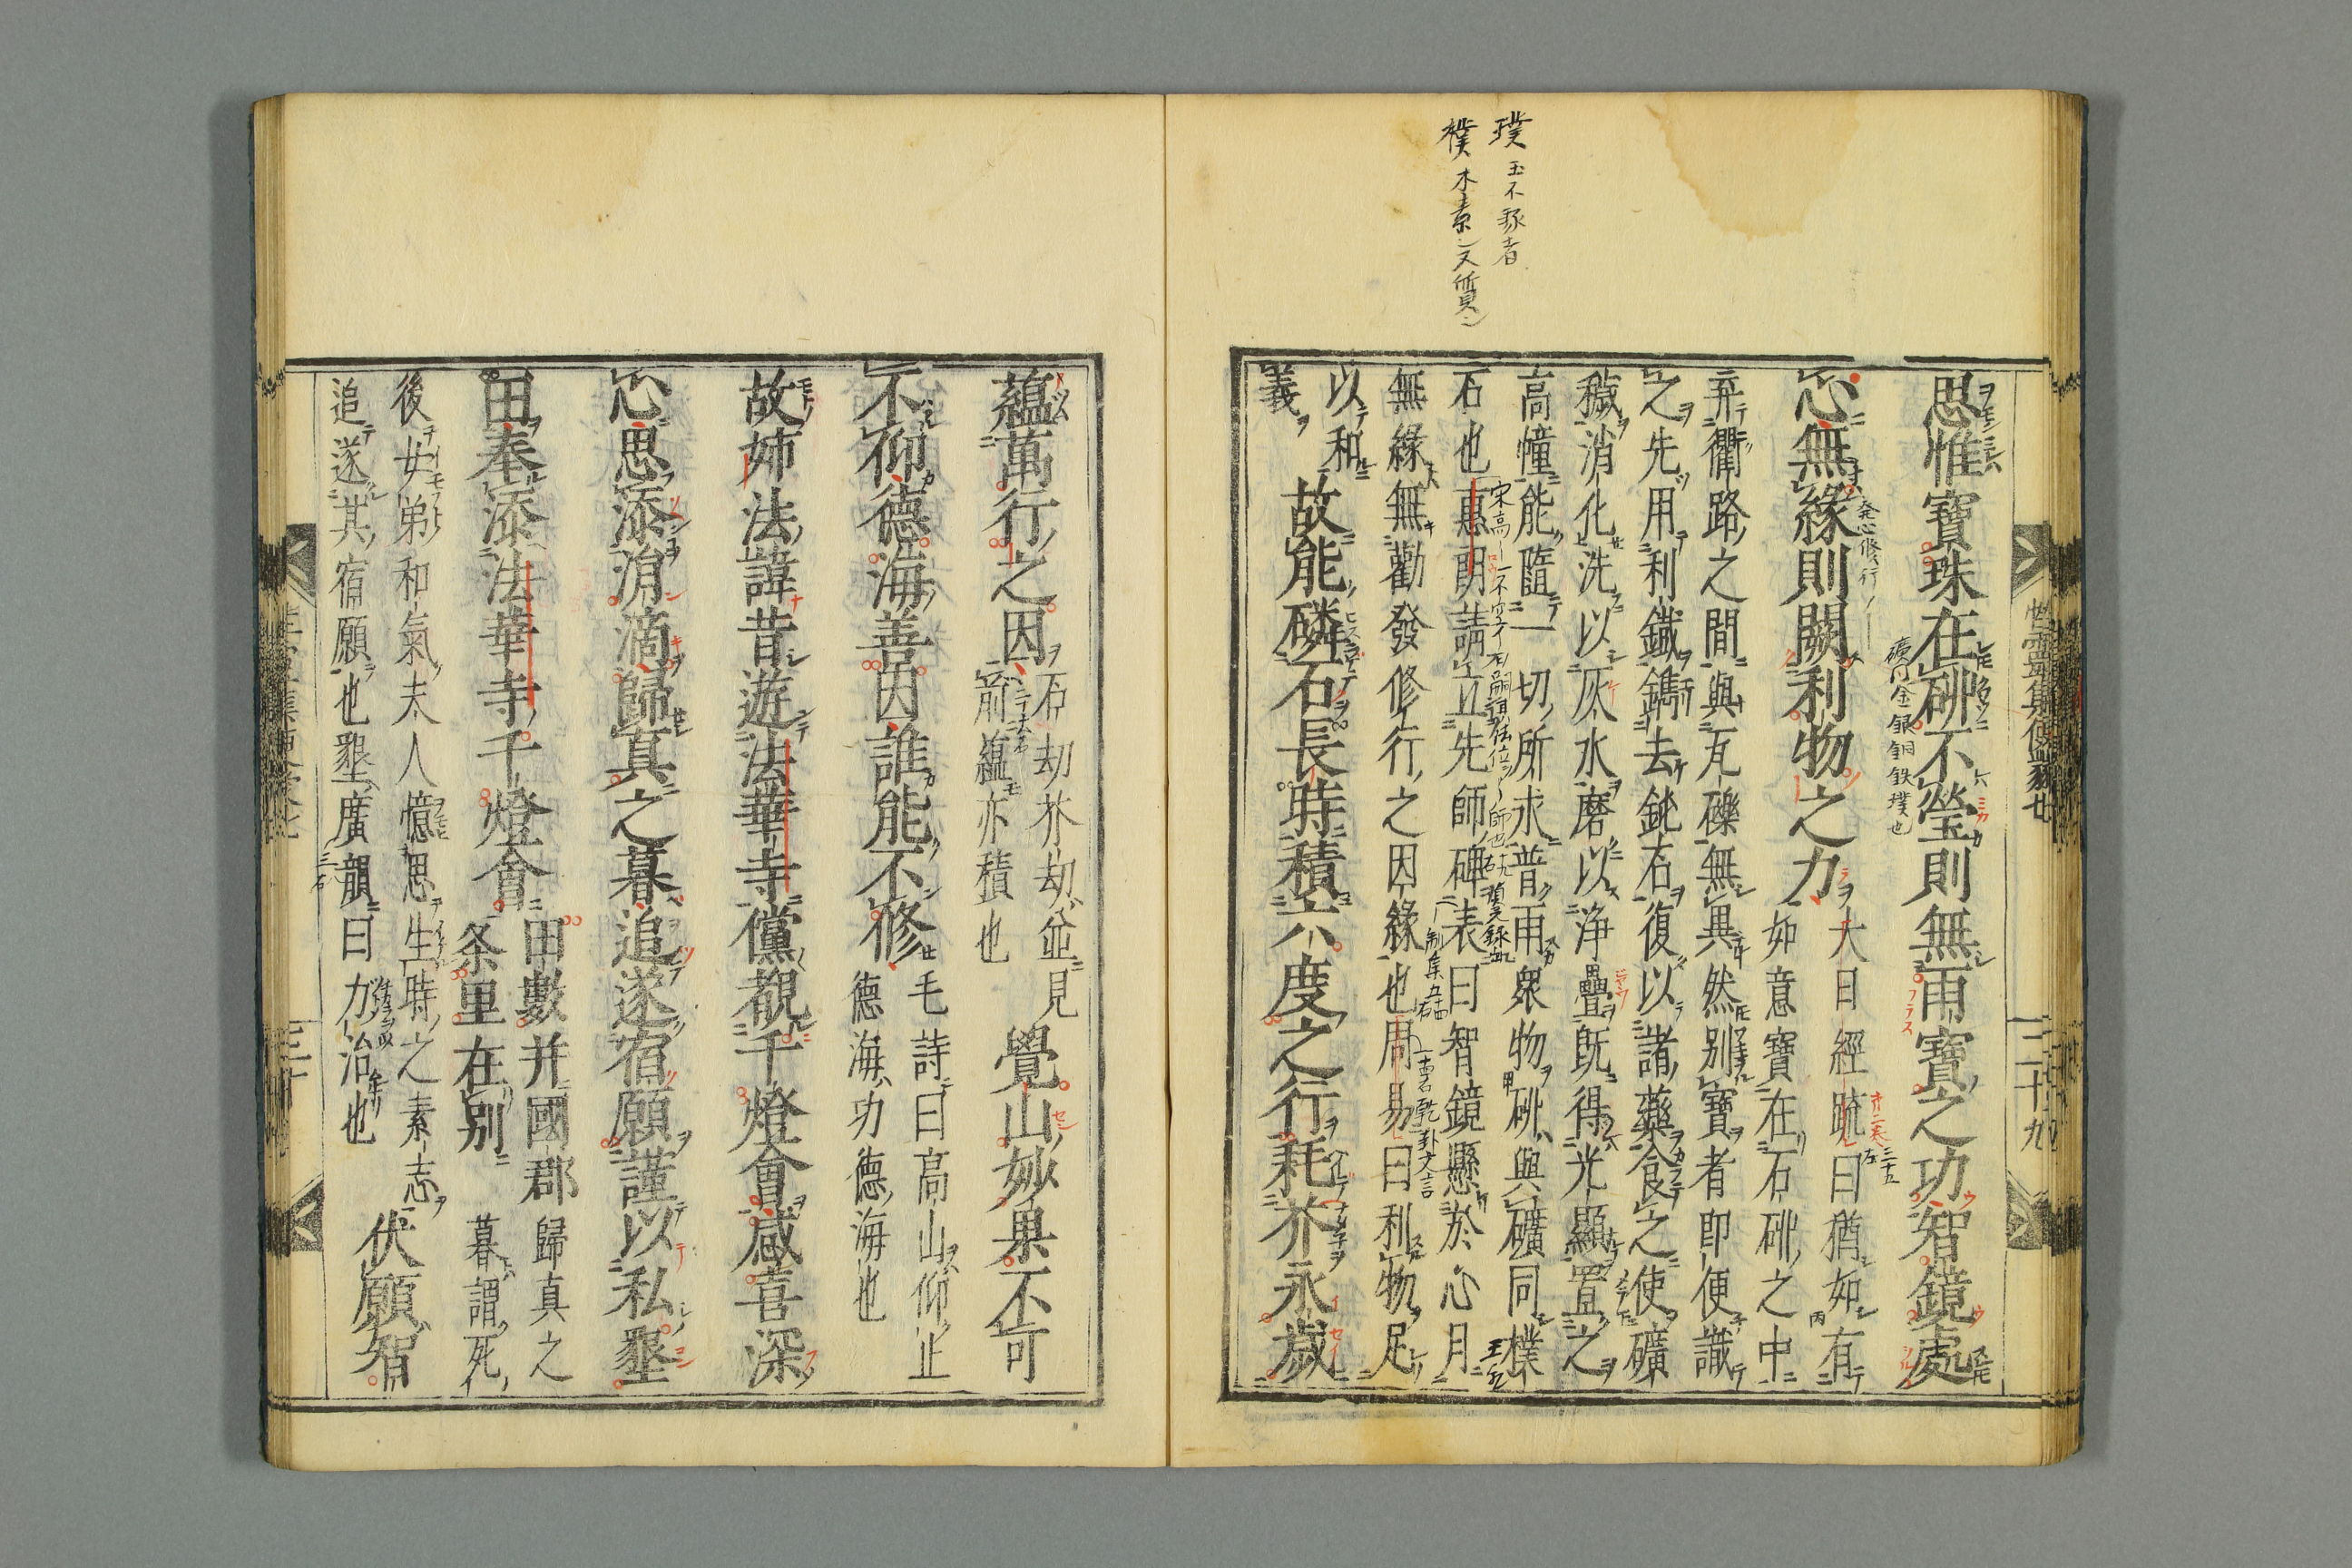 璞 玉不琢者
樸 木素又質
思惟寶珠在𥑐不瑩則無雨寶之功智鏡處
礦門金銀銅鉄璞也
心無緣則闕利物之力
発心修行
大日經疏曰猶如有
如意寶在石𥑐之中
弃衢路之間與瓦礫無異然別寶者即便識
之先用利鐵鐫去鈋石復以諸藥食之使礦
穢消化洗以灰水磨以浄疊既得光顯置之
高幢能隨一切所求普雨衆物𥑐與礦同樸
石也惠朗請立先師碑表曰智鏡懸於心月
無緣無勸發修行之因緣也周易曰利物足
乾卦文言
以和
義
故能磷石長時積六度之行耗芥永歲
三十九
蘊萬行之因
石劫芥劫並見
前蘊亦積也
覺山妙果不可
不仰德海善因誰能不修
毛詩曰高山仰止
德海功德海也
故姉法諱昔遊法華寺儻覩千燈會感喜深
心思添涓滴歸真之暮追遂宿願謹以私墾
田奉添法華寺千燈會
田數并國郡
条里在別
歸真之
暮謂死
後女弟和氣夫人憶思生時之素志
追遂其宿願也墾廣韻曰力治也
伏願智